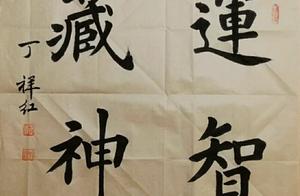 運智
藏神
丁祥红